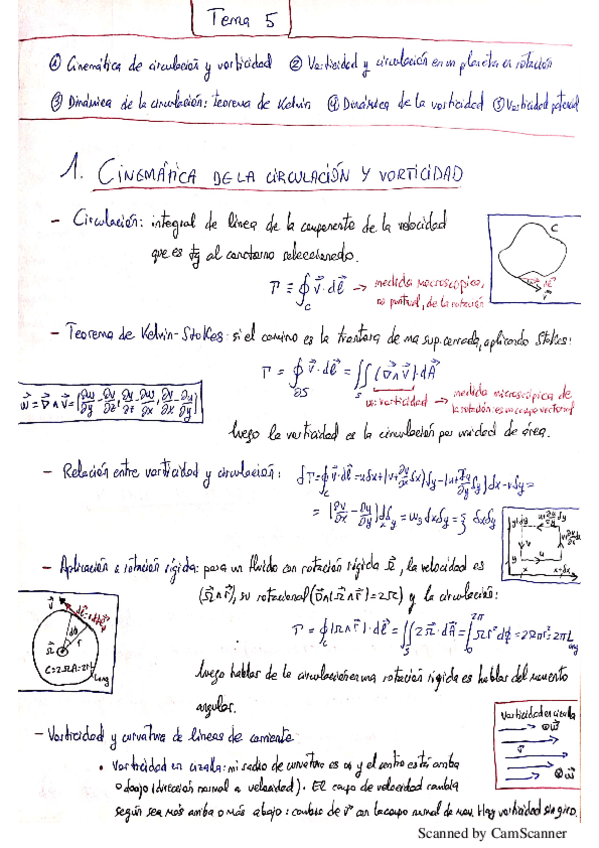 Tema 5
① Cinemática de circulación y vorticidad ② Vorticidad y circulación en un planeta en rotación
③ Dinámica de la circulación: teorema de Kelvin ④ Dinámica de la vorticidad ⑤ Vorticidad potencial
1. CINEMÁTICA DE LA CIRCULACIÓN Y VORTICIDAD
- Circulación: integral de línea de la componente de la velocidad
que es tg al contorno seleccionado.
C
Γ ≡ ∮_C v⃗·dℓ⃗ → medida macroscópica,
no puntual, de la rotación
dℓ⃗
v⃗
- Teorema de Kelvin-Stokes: si el camino es la frontera de una sup. cerrada, aplicando Stokes:
Γ = ∮_∂S v⃗·dℓ⃗ = ∬_S (∇⃗∧v⃗)·dA⃗
w⃗ = ∇⃗∧v⃗ = (∂w/∂y - ∂v/∂z, ∂u/∂z - ∂w/∂x, ∂v/∂x - ∂u/∂y)
w: vorticidad → medida microscópica de
la rotación: es un campo vectorial
luego la vorticidad es la circulación por unidad de área.
- Relación entre vorticidad y circulación: δΓ = ∮_C v⃗·dℓ⃗ = uδx + (v + ∂v/∂x δx)δy - (u + ∂u/∂y δy)δx - vδy =
= (∂v/∂x - ∂u/∂y) δxδy = w₃ δxδy = ξ δxδy
y+δy
u + ∂u/∂y δy
v
v + ∂v/∂x δx
y
u
x
x+δx
- Aplicación a rotación rígida: para un fluido con rotación rígida Ω⃗, la velocidad es
(Ω⃗∧r⃗), su rotacional (∇⃗∧(Ω⃗∧r⃗) = 2Ω) y la circulación:
Γ = ∮(Ω∧r)·dℓ⃗ = ∬_S 2Ω⃗·dA⃗ = ∫₀^2π Ωr²dα = 2Ωπr² = 2πL_ang
v⃗
r
Ω⃗
C = 2ΩA = 2πL_ang
luego hablar de la circulación en una rotación rígida es hablar del momento
angular.
- Vorticidad y curvatura de líneas de corriente
Vorticidad en cizalla
⊙ w⃗
v⃗
⊗ w⃗
• Vorticidad en cizalla: mi radio de curvatura es ∞ y el centro está arriba
o abajo (dirección normal a velocidad). El campo de velocidad cambia
según sea más arriba o más abajo: cambio de v⃗ con la comp normal de mov. Hay vorticidad sin giro.
Scanned by CamScanner